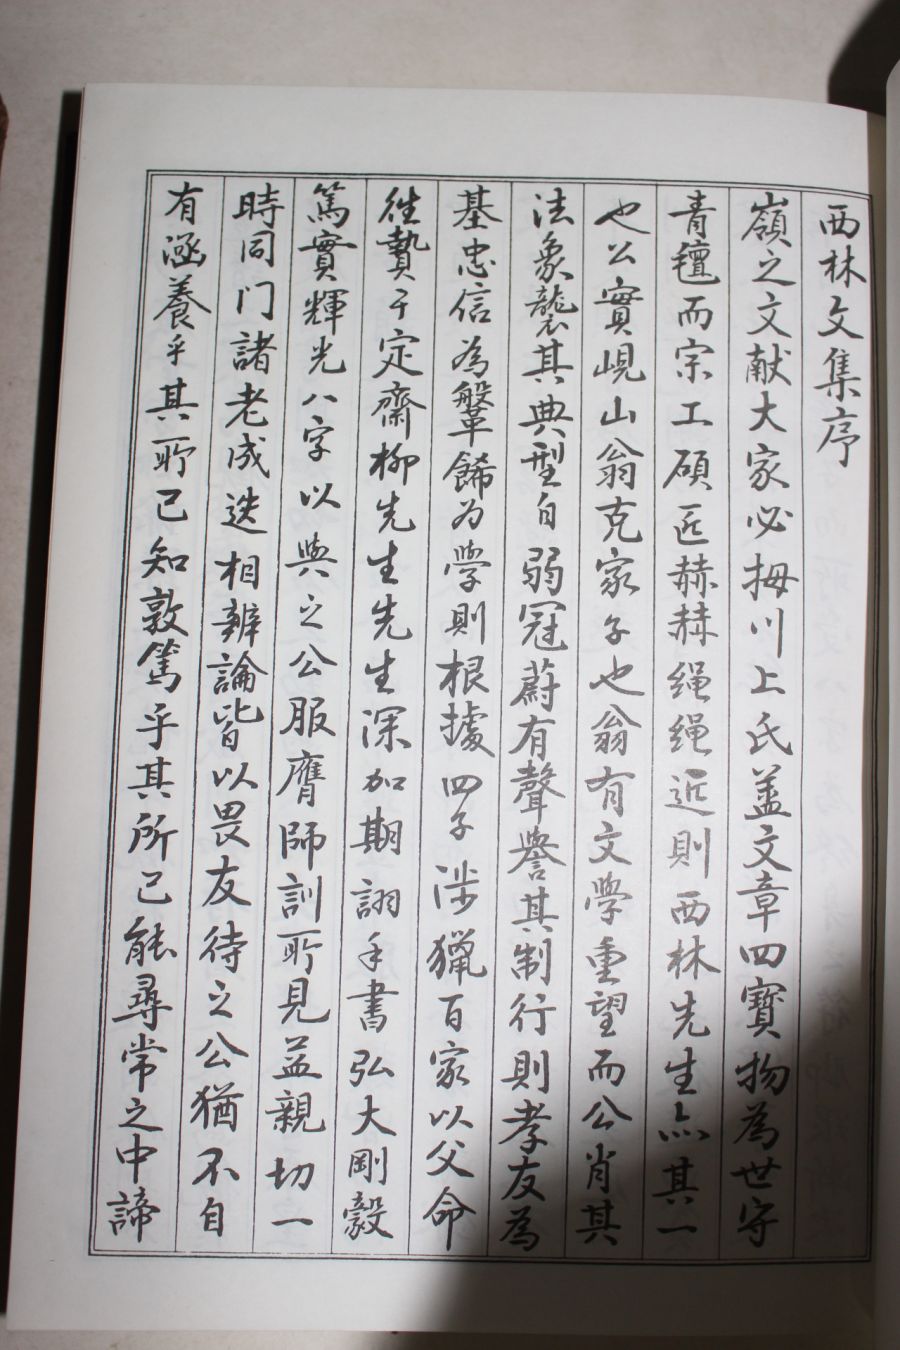 西林文集序
嶺之文献大家必拇川上氏盖文章四寶物為世守
青氊而宗工碩匠赫赫绳绳近則西林先生亦其一
也公實峴山翁克家子也翁有文學重望而公肖其
法象襲其典型自弱冠蔚有聲譽其制行則孝友為
基忠信為鞶鞶餙为學則根據四子涉獵百家以父命
徃贄于定齋柳先生先生深加期詡手書弘大剛毅
篤實輝光八字以與之公服膺師訓所見益親切一
時同门諸老成迭相辨論皆以畏友待之公猶不自
有涵養乎其所已知敦篤乎其所已能尋常之中諦